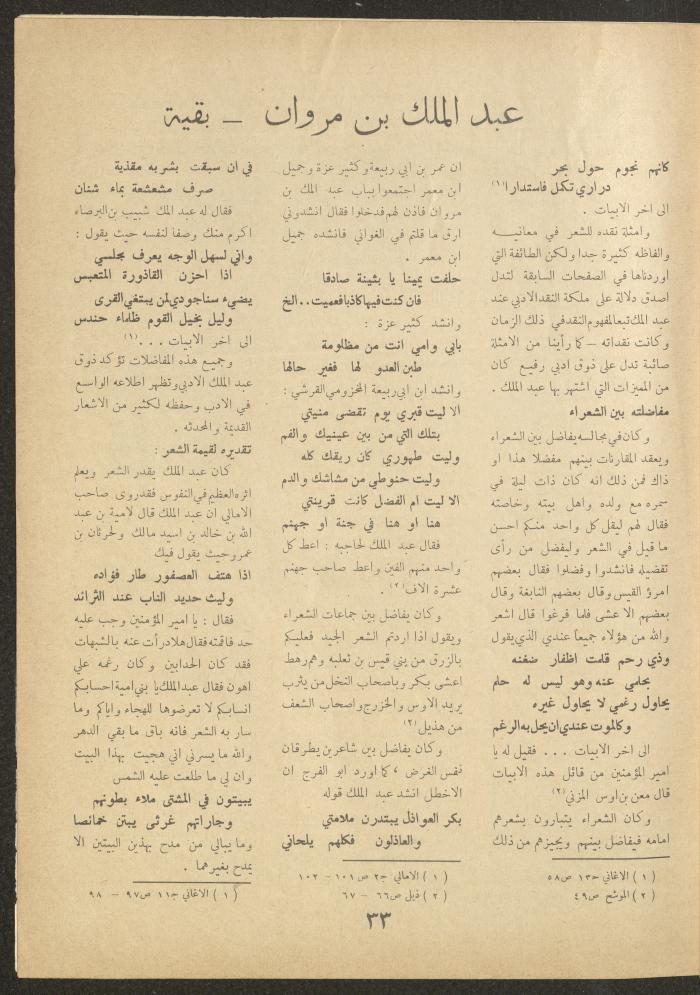 عبد الملك بن مروان – بقية
كانهم نجوم حول بحر
دراري تكمل فاستدارا (١)
الى اخر الابيات .
وامثلة نقده للشعر في معانيـــه
والفاظه كثيرة جدا ولكن الطائفة التي
اوردناها في الصفحات السابقة لتدل
اصدق دلالة على ملكة النقد الادبي عند
عبد الملك تبعا لمفهوم النقد في ذلك الزمان
وكانت نقداته – كما رأينا من الامثلة
صائبة تدل على ذوق ادبي رفيع كان
من المميزات التي اشتهر بها عبد الملك .
مفاضلته بين الشعراء
وكان في مجالسه يفاضل بين الشعراء
ويعقد المقارنات بينهم مفضلا هذا او
ذاك فمن ذلك انه كان ذات ليلة في
سمره مع ولده واهل بيته وخاصته
فقال لهم ليقل كل واحد منكم احسن
ما قيل في الشعر وليفضل من رأى
تفضيله فانشدوا وفضلوا فقال بعضهم
امرؤ القيس وقال بعضهم النابغة وقال
بعضهم الاعشى فلما فرغوا قال اشعر
والله من هؤلاء جميعا عندي الذي يقول
وذي رحم قلمت اظفار ضغنه
بحلمي عنه وهو ليس له حلم
يحاول رغمي لا يحاول غيره
وكالموت عندي ان يحل به الرغم
الى اخر الابيات . . . فقيل له يا
امير المؤمنين من قائل هذه الابيات
قال معن بن اوس المزني (٢)
وكان الشعراء يتبارون بشعرهم
امامه فيفاضل بينهم ويجيزهم من ذلك
( ١ ) الاغاني ج١٣ ص٥٨
( ٢ ) الموشح ص٤٩
ان عمر بن ابي ربيعة وكثير عزة وجميل
ابن معمر اجتمعوا بباب عبد الملك بن
مروان فاذن لهم فدخلوا فقال انشدوني
ارق ما قلتم في الغواني فانشده جميل
ابن معمر .
حلفت يمينا يا بثينة صادقا
فان كنت فيها كاذبا فعميت . . الخ
وانشد كثير عزة :
بابي وامي انت من مظلومة
طبن العدو لها فغير حالها
وانشد ابن ابي ربيعة المخزومي القرشي :
الا ليت قبري يوم تقضى منيتي
بتلك التي من بين عينيك والفم
وليت طهوري كان ريقك كله
وليت حنوطي من مشاشك والدم
الا ليت ام الفضل كانت قرينتي
هنا او هنا في جنة او جهنم
فقال عبد الملك لحاجبه : اعط كل
واحد منهم الفين واعط صاحب جهنم
عشرة الاف (٢) .
وكان يفاضل بين جماعات الشعراء
ويقول اذا اردتم الشعر الجيد فعليكم
بالزرق من بني قيس بن ثعلبه وهم رهط
اعشى بكر وباصحاب النخل من يثرب
يريد الاوس والخزرج واصحاب الشعف
من هذيل (٢)
وكان يفاضل بين شاعرين يطرقان
نفس الغرض ، كما اورد ابو الفرج ان
الاخطل انشد عبد الملك قوله
بكر العواذل يبتدرن ملامتي
والعاذلون فكلهم يلحاني
( ١ ) الامالي ج٢ ص ١٠١ – ١٠٢
( ٢ ) ذيل ص٦٦ – ٦٧
في ان سبقت بشربه مقذية
صرف مشعشعة بماء شنان
فقال له عبد الملك شبيب بن البرصاء
اكرم منك وصفا لنفسه حيث يقول :
واني لسهل الوجه يعرف مجلسي
اذا احزن القاذورة المتعبس
يضيء سنا جودي لمن يبتغي القرى
وليل بخيل القوم ظلماء حندس
الى اخر الابيات . . . (١)
وجميع هذه المفاضلات تؤكد ذوق
عبد الملك الادبي وتظهر اطلاعه الواسع
في الادب وحفظه لكثير من الاشعار
القديمة والمحدثه .
تقديره لقيمة الشعر :
كان عبد الملك يقدر الشعر ويعلم
اثره العظيم في النفوس فقد روى صاحب
الامالي ان عبد الملك قال لامية بن عبد
الله بن خالد بن اسيد مالك ولحرثان بن
عمرو حيث يقول فيك
اذا هتف العصفور طار فؤاده
وليث حديد الناب عند الثرائد
فقال : يا امير المؤمنين وجب عليه
حد فاقمته فقال هلا درأت عنه بالشبهات
فقد كان الحد ابين وكان رغمه علي
اهون فقال عبد الملك يا بني امية احسابكم
انسابكم لا تعرضوها للهجاء واياكم وما
سار به الشعر فانه باق ما بقي الدهر
والله ما يسرني اني هجيت بهذا البيت
وان لي ما طلعت عليه الشمس
يبيتون في المشتى ملاء بطونهم
وجاراتهم غرثى يبتن خمائصا
وما يبالي من مدح بهذين البيتين الا
يمدح بغيرهما .
( ١ ) الاغاني ج١١ ص٩٧ – ٩٨
٣٣